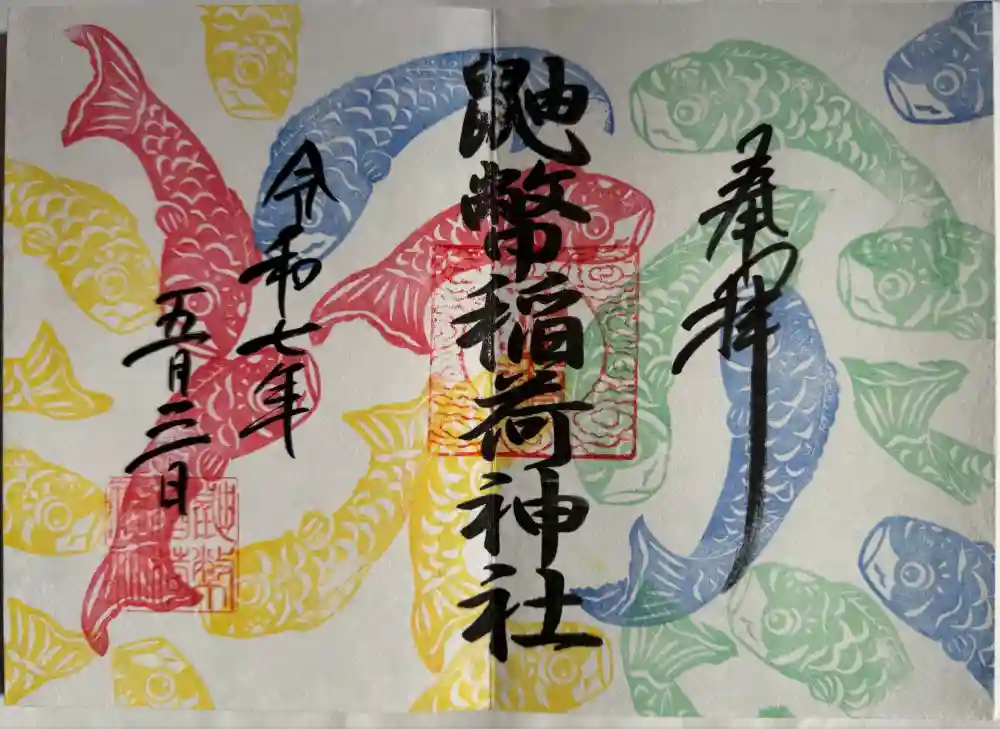 奉拝
鼬幣稲荷神社
令和七年
五月三日